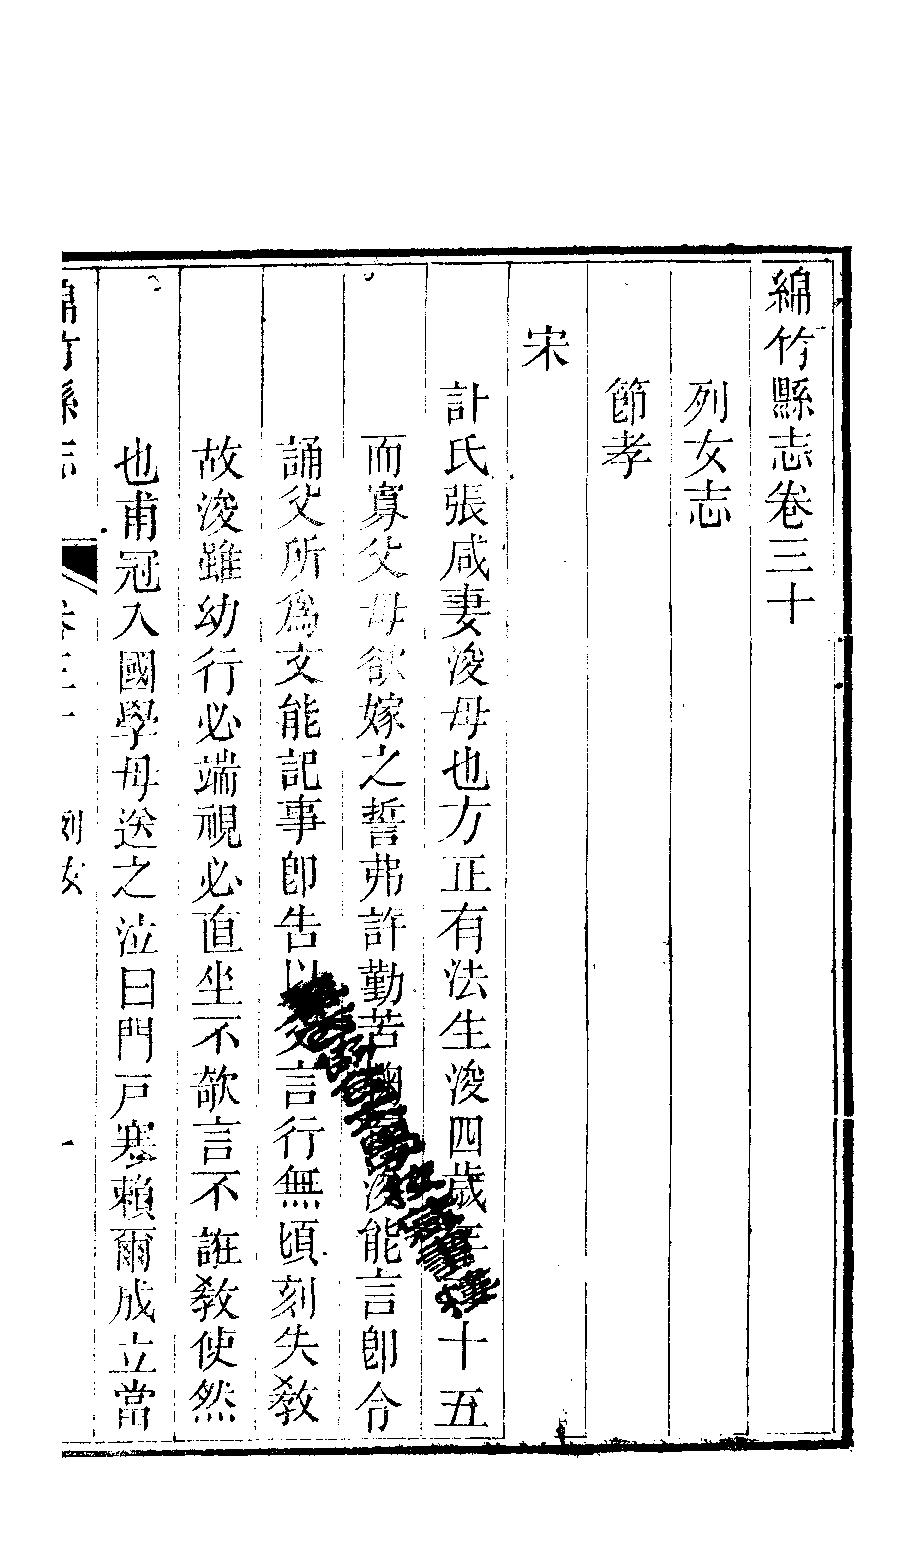 綿竹縣志卷三十
列女志
節孝
宋
計氏張咸妻浚母也方正有法生浚四歲年二十五
而寡父母欲嫁之誓弗許勤苦鞠育浚能言卽令
誦父所爲文能記事卽告以父言行無頃刻失教
故浚雖幼行必端視必直坐不欹言不誑教使然
也甫冠入國學母送之泣曰門戸寒賴爾成立當
綿竹縣志 卷三十 列女 一